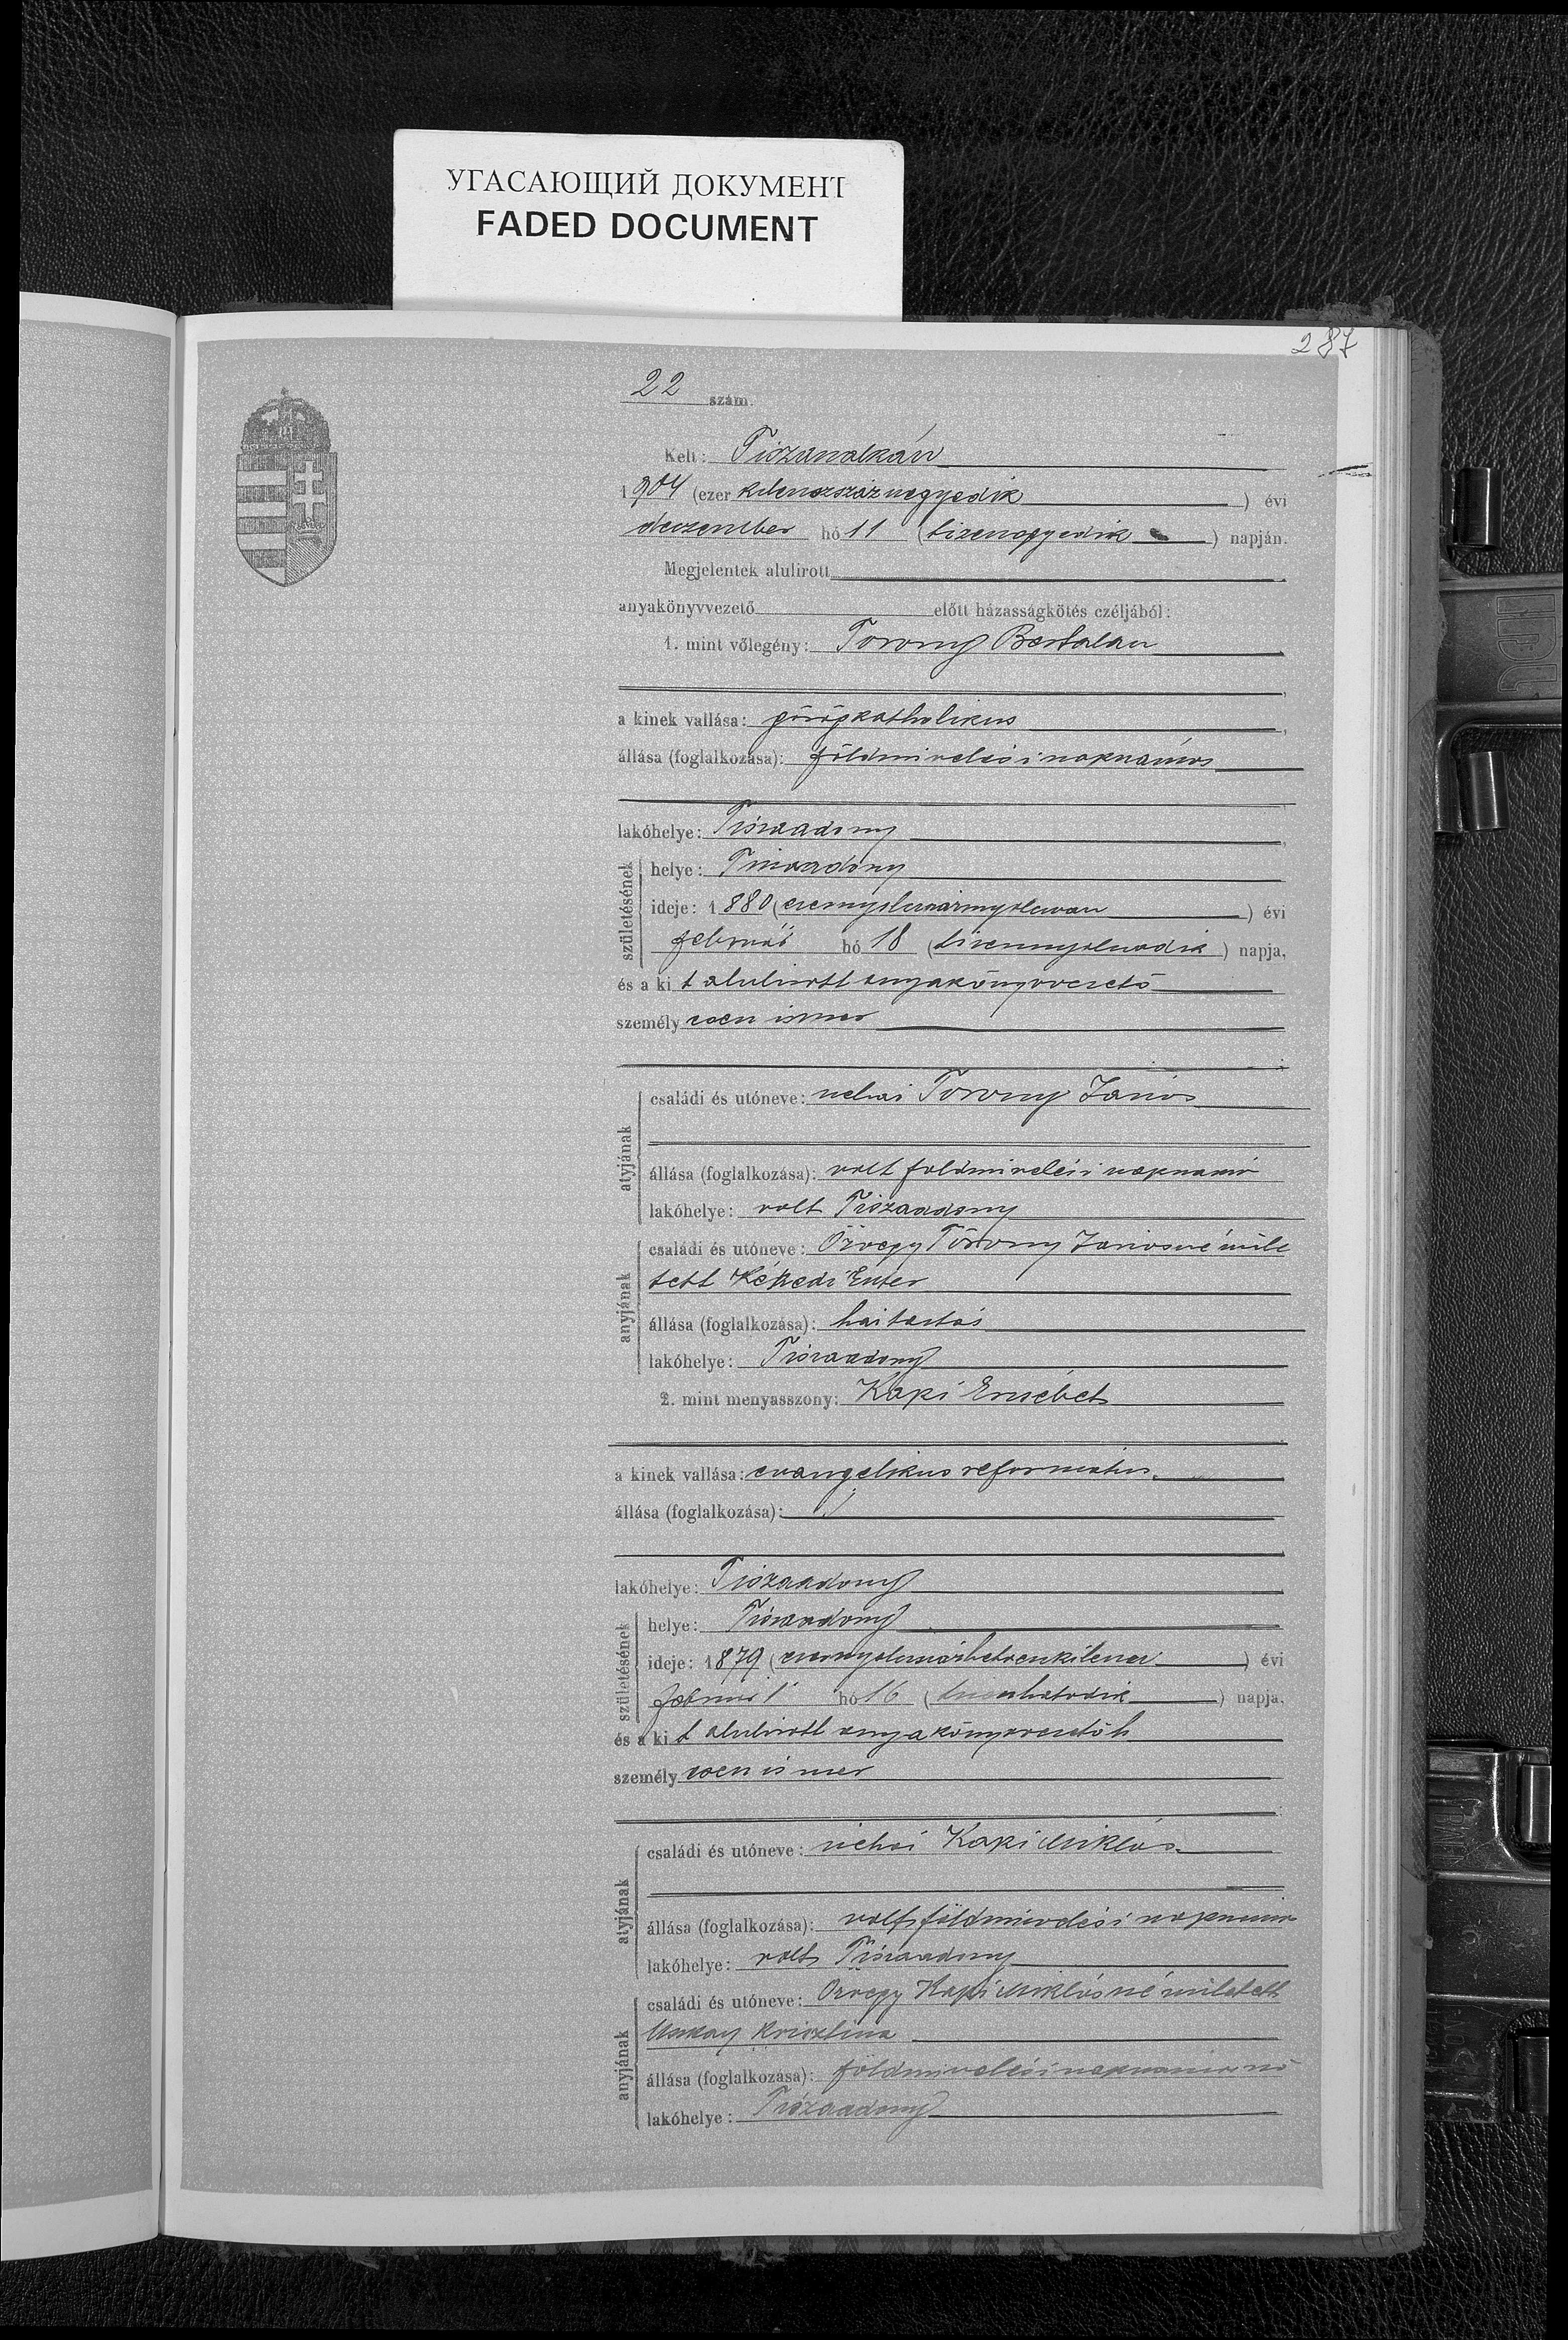 УГАСАЮЩИЙ ДОКУМЕНТ
FADED DOCUMENT
287
22 szám.
Kelt: Tiszasalkán
1904 (ezer kilenczszáznegyedik) évi
deczember hó 11 (tizenegyedik) napján.
Megjelentek alulirott
anyakönyvvezető előtt házasságkötés czéljából:
1. mint vőlegény: Torony Bertalan
a kinek vallása: görögkatholikus
állása (foglalkozása): földmivelési napszámos
lakóhelye: Tiszaadony
születésének
helye: Tiszaadony
ideje: 1880 (ezernyolcszáznyolcvan) évi
február hó 18 (tizennyolcadik) napja,
és a kit alulirott anyakönyvvezető
személyesen ismer
atyjának
családi és utóneve: néhai Torony János
állása (foglalkozása): volt földmivelési napszámos
lakóhelye: volt Tiszaadony
anyjának
családi és utóneve: Özvegy Torony Jánosné szüle
tett Kékedi Eszter
állása (foglalkozása): háztartás
lakóhelye: Tiszaadony
2. mint menyasszony: Kapi Erzsébet
a kinek vallása: evangelikus református
állása (foglalkozása):
lakóhelye: Tiszaadony
születésének
helye: Tiszaadony
ideje: 1879 (ezernyolcszázhetvenkilenc) évi
február hó 16 (tizenhatodik) napja,
és a kit alulirott anyakönyvvezető
személyesen ismer
atyjának
családi és utóneve: néhai Kapi Miklós
állása (foglalkozása): volt földmivelési napszámos
lakóhelye: volt Tiszaadony
anyjának
családi és utóneve: Özvegy Kapi Miklósné született
Krisztina
állása (foglalkozása): földmivelési napszámosnő
lakóhelye: Tiszaadony